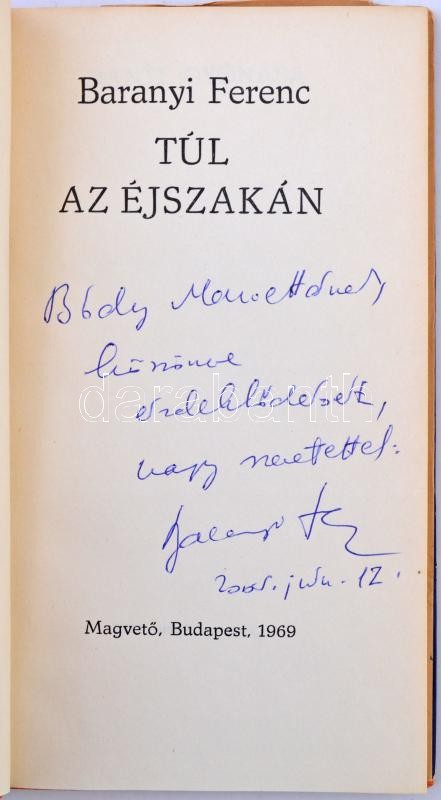 Baranyi Ferenc
TÚL
AZ ÉJSZAKÁN
Bódy Mariettának,
köszönve
érdeklődését,
darabanth
nagy szeretettel:
Baranyi F
2005. jún. 12.
Magvető, Budapest, 1969